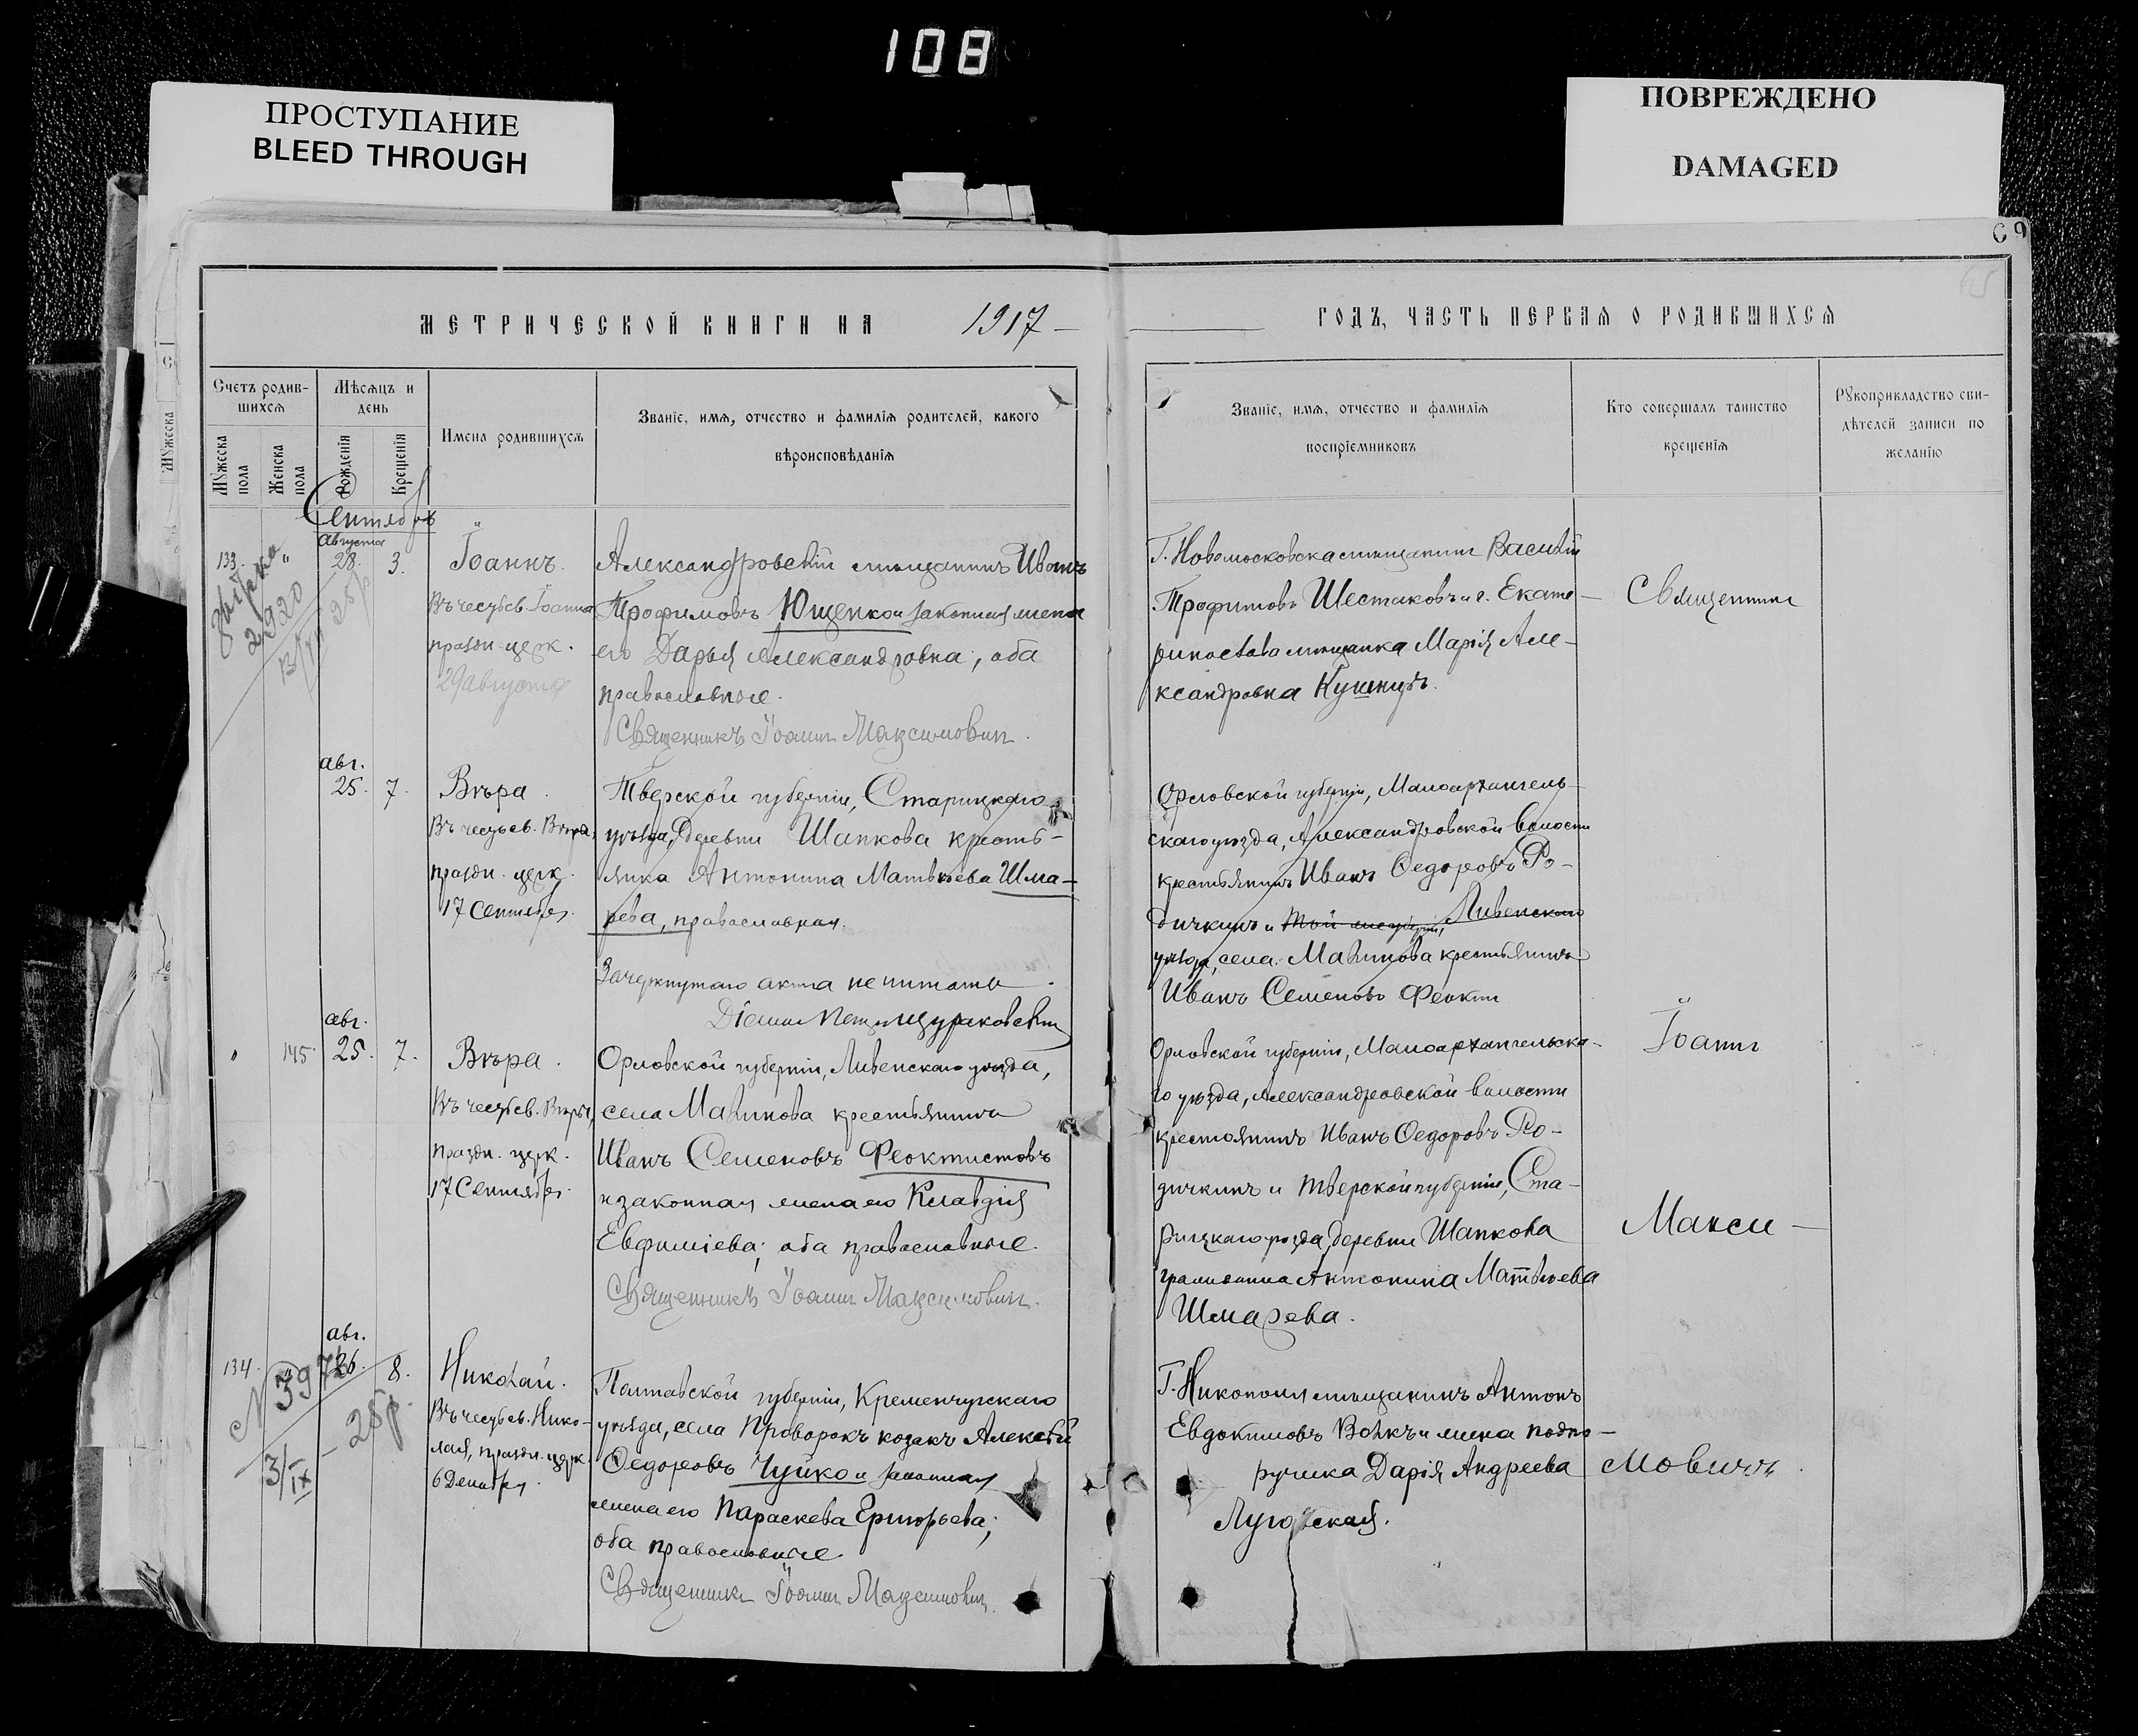 108
ПРОСТУПАНИЕ
BLEED THROUGH
ПОВРЕЖДЕНО
DAMAGED
69
МЕТРИЧЕСКОЙ КНИГИ НА 1917
Счетъ родив-
шихся
Мѣсяцъ и
день
Мужеска
пола
Женска
пола
Рожденія
Крещенія
Имена родившихся
Званіе, имя, отчество и фамилія родителей, какого
вѣроисповѣданія
Сентябрь
августа
133. " 28. 3. Іоаннъ.
Въ честь св. Іоанна
праздн. церк.
29 августа
Александровскій мѣщанинъ Иванъ
Трофимовъ Ющенко и законная жена
его Дарья Александровна, оба
православные.
Священникъ Іоаннъ Максимович.
авг.
25. 7. Вѣра.
Въ честь св. Вѣры,
праздн. церк.
17 Сентября.
Тверской губерніи, Старицкаго
уѣзда, деревни Шапкова кресть-
янка Антонина Матвѣева Шма-
рева, православная.
Зачеркнутаго акта не читать.
авг.
145. 25. 7. Вѣра.
Въ честь св. Вѣры,
праздн. церк.
17 Сентября.
Орловской губерніи, Ливенскаго уѣзда,
села Малинова крестьянинъ
Иванъ Семеновъ Феоктистовъ
и законная жена его Клавдія
Евфиміева; оба православные.
Священникъ Іоаннъ Максимович.
авг.
134. 26. 8. Николай.
Въ честь св. Нико-
лая, праздн. церк.
6 Декабря.
N 397
3/IX
25р.
Полтавской губерніи, Кременчугскаго
уѣзда, села Проворокъ козакъ Алексѣй
Ѳедоровъ Чуйко и законная
жена его Параскева Григорьева;
оба православные.
Священникъ Іоаннъ Максимович.
ГОДЪ, ЧАСТЬ ПЕРВАЯ О РОДИВШИХСЯ
Званіе, имя, отчество и фамилія
воспріемниковъ
Кто совершалъ таинство
крещенія
Рукоприкладство сви-
дѣтелей записи по
желанію
Г. Новомосковска мѣщанинъ Василій
Трофимовъ Шестаковъ и г. Екате-
ринослава мѣщанка Марія Але-
ксандровна
Орловской губерніи, Малоархангель-
скаго уѣзда, Александровской волости
крестьянинъ Иванъ Ѳедоровъ Ро-
дичкинъ и Ливенскаго
уѣзда, села Малинова крестьянинъ
Иванъ Семеновъ
Орловской губерніи, Малоархангельска-
го уѣзда, Александровской волости
крестьянинъ Иванъ Ѳедоровъ Ро-
дичкинъ и Тверской губерніи, Ста-
рицкаго уѣзда, деревни Шапкова
Антонина Матвѣева
Шмарева.
Г. Никополя мѣщанинъ Антонъ
Евдокимовъ Волкъ и жена подпо-
ручика Дарія Андреева
Луговская.
Священникъ
Іоаннъ
Макси-
мовичъ.